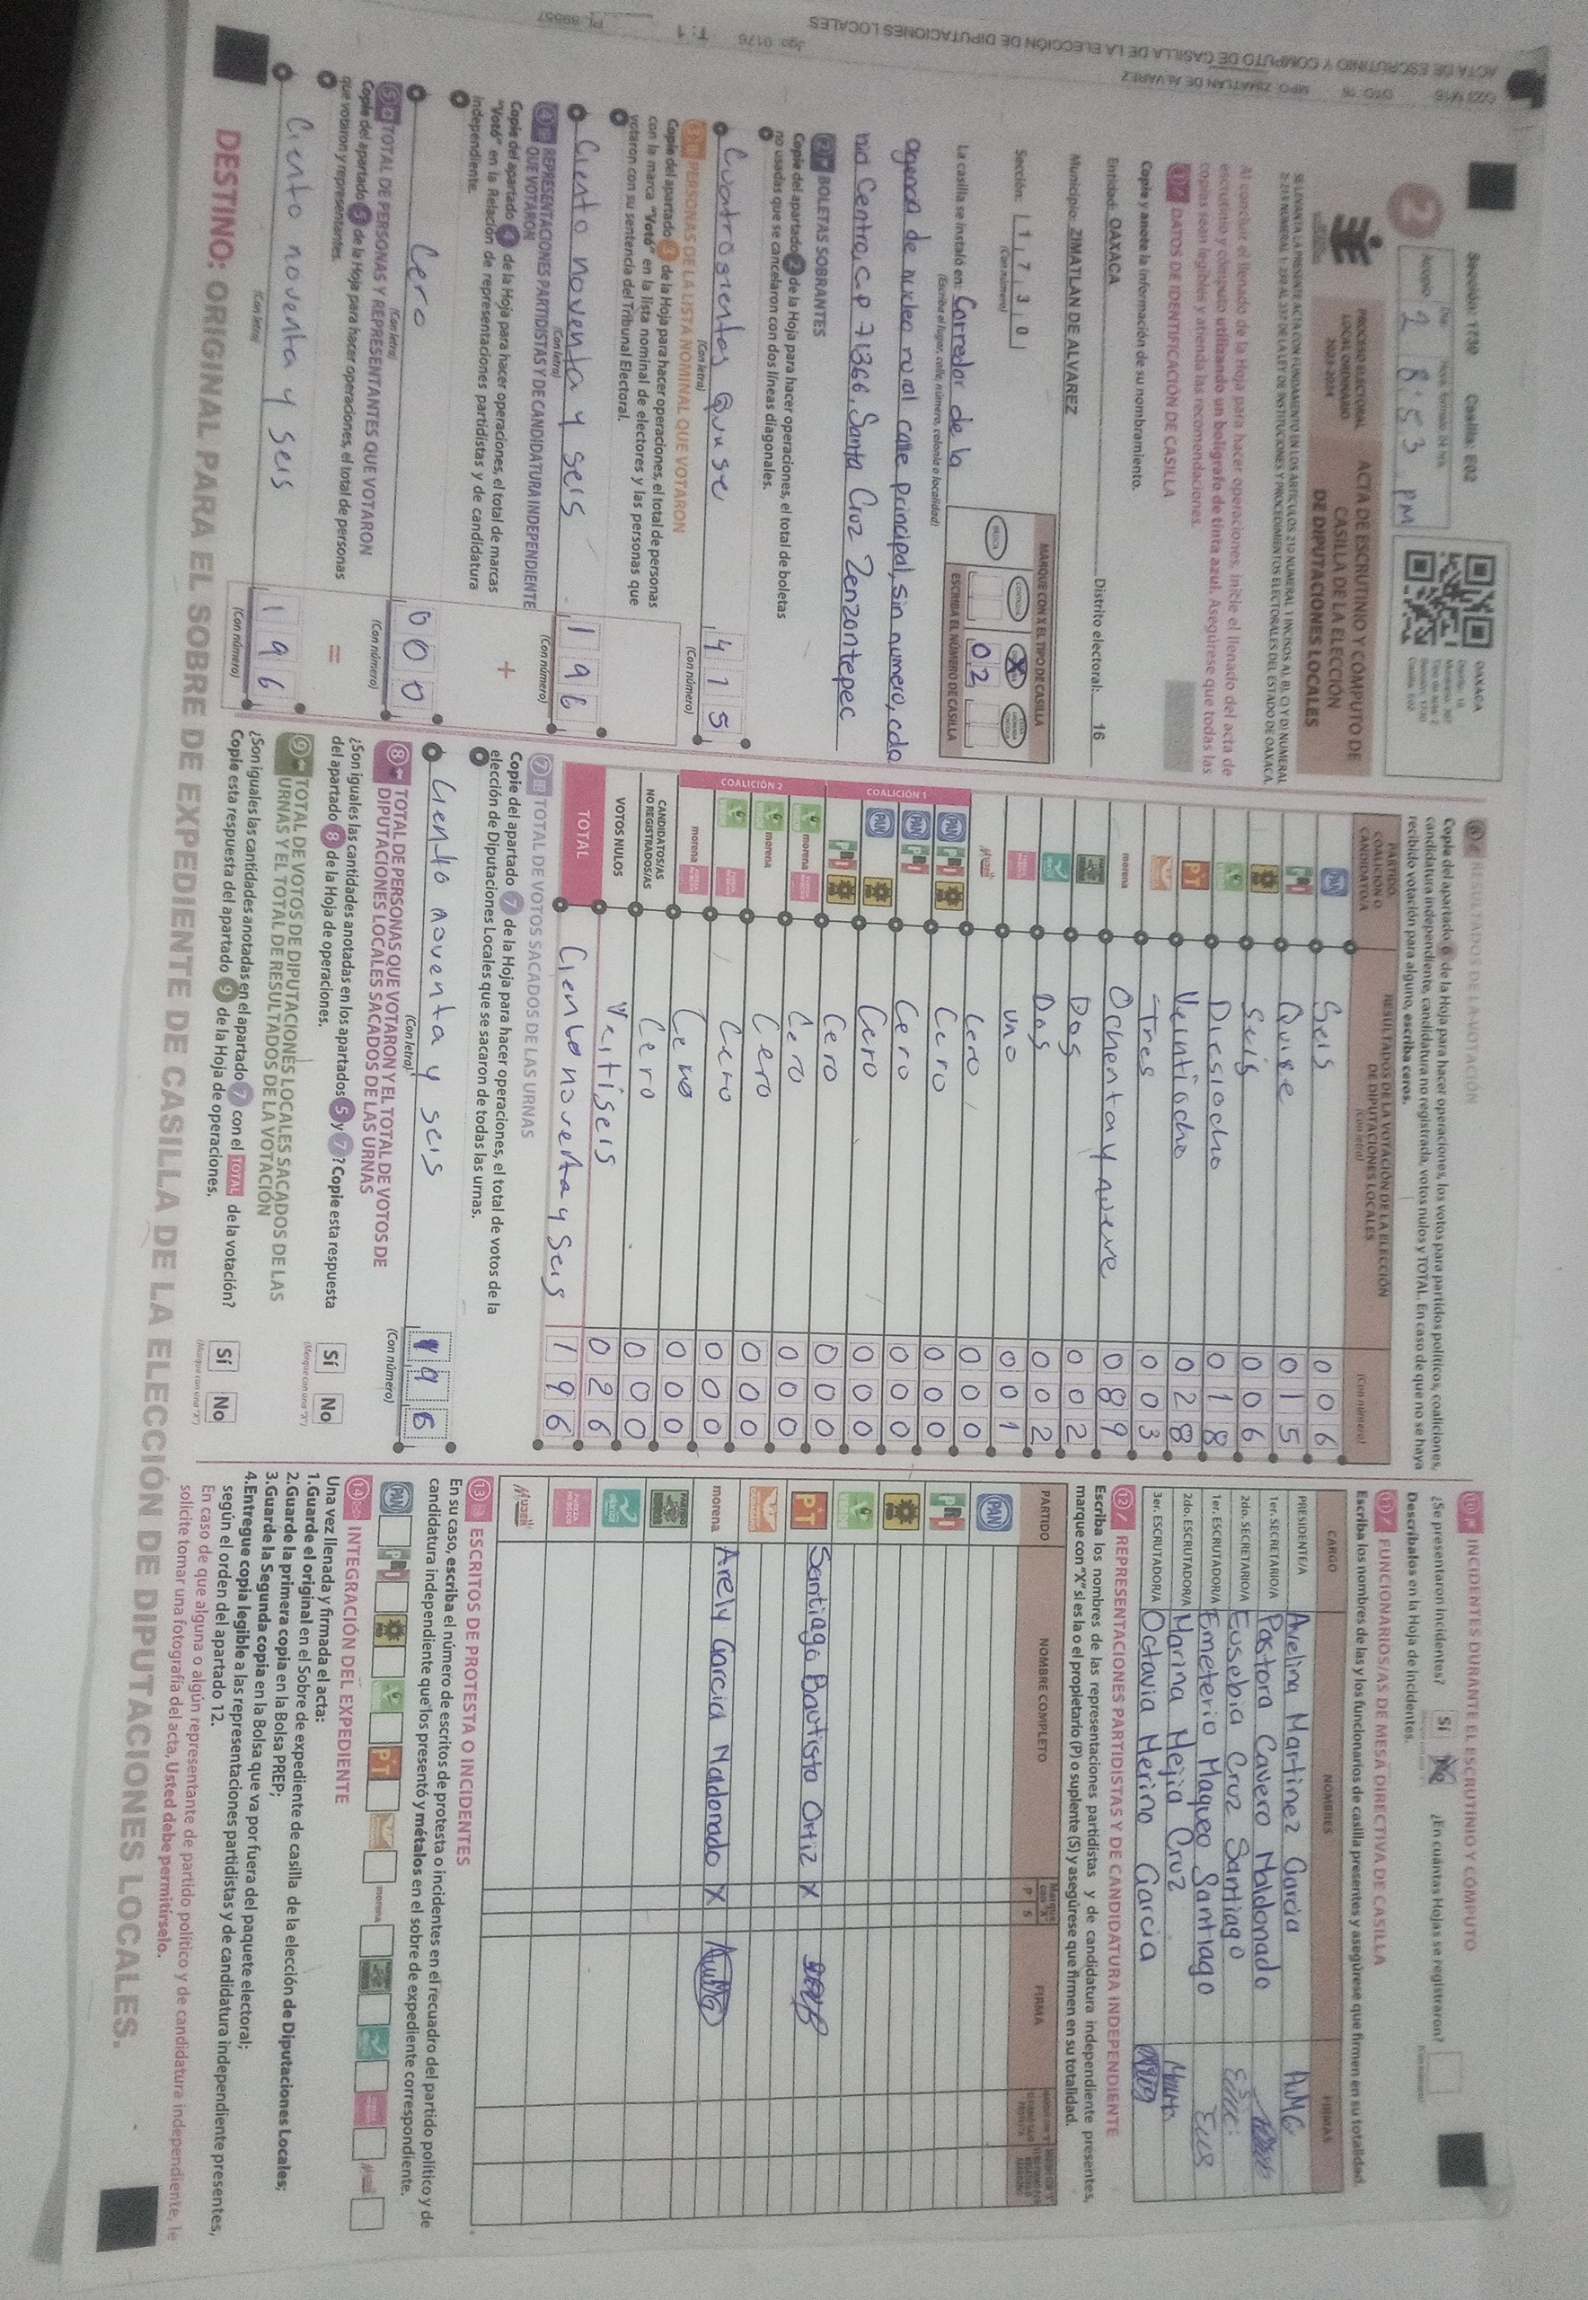 ACTA DE ESCRUTINIO Y CÓMPUTO DE CASILLA DE LA ELECCIÓN DE DIPUTACIONES LOCALES
MPO: ZIMATLAN DE ALVAREZ
Sección: 1730 Casilla: E02
2
Acopio
2 8:53 pm
OAXACA
PROCESO ELECTORAL
LOCAL ORDINARIO
2023-2024
ACTA DE ESCRUTINIO Y CÓMPUTO DE
CASILLA DE LA ELECCIÓN
DE DIPUTACIONES LOCALES
Al concluir el llenado de la Hoja para hacer operaciones, inicie el llenado del acta de
escrutinio y cómputo utilizando un bolígrafo de tinta azul. Asegúrese que todas las
copias sean legibles y atienda las recomendaciones.
1 DATOS DE IDENTIFICACIÓN DE CASILLA
Copie y anote la información de su nombramiento.
Entidad: OAXACA Distrito electoral: 16
Municipio: ZIMATLAN DE ALVAREZ
Sección: 1730
(Con número)
MARQUE CON X EL TIPO DE CASILLA
X
ESCRIBA EL NÚMERO DE CASILLA
02
La casilla se instaló en: Corredor de la
(Escriba el lugar, calle, número, colonia o localidad)
agencia de nucleo rural calle principal, sin numero, colo
nia Centro, C.P 71366, Santa Cruz Zenzontepec
2 BOLETAS SOBRANTES
Copie del apartado 2 de la Hoja para hacer operaciones, el total de boletas
no usadas que se cancelaron con dos líneas diagonales.
Cuatrosientos Quinse 415
(Con letra) (Con número)
3 PERSONAS DE LA LISTA NOMINAL QUE VOTARON
Copie del apartado 3 de la Hoja para hacer operaciones, el total de personas
con la marca "Votó" en la lista nominal de electores y las personas que
votaron con su sentencia del Tribunal Electoral.
Ciento noventa y seis 196
(Con letra) (Con número)
4 REPRESENTACIONES PARTIDISTAS Y DE CANDIDATURA INDEPENDIENTE
QUE VOTARON
Copie del apartado 4 de la Hoja para hacer operaciones, el total de marcas
"Votó" en la Relación de representaciones partidistas y de candidatura
independiente.
+
Cero 000
(Con letra) (Con número)
5 TOTAL DE PERSONAS Y REPRESENTANTES QUE VOTARON
Copie del apartado 5 de la Hoja para hacer operaciones, el total de personas
que votaron y representantes.
=
Ciento noventa y seis 196
(Con letra) (Con número)
6 RESULTADOS DE LA VOTACIÓN
Copie del apartado 6 de la Hoja para hacer operaciones, los votos para partidos políticos, coaliciones,
candidatura independiente, candidatura no registrada, votos nulos y TOTAL. En caso de que no se haya
recibido votación para alguno, escriba ceros.
PARTIDO, COALICIÓN O CANDIDATO/A
RESULTADOS DE LA VOTACIÓN DE LA ELECCIÓN
DE DIPUTACIONES LOCALES
(Con letra) (Con número)
PAN Seis 006
PRI Quinse 015
PRD Seis 006
Diesiocho 018
PT Veintiocho 028
Tres 003
morena Ochenta y nueve 089
Dos 002
Dos 002
uno 001
Cero 000
COALICIÓN 1
PAN PRI PRD Cero 000
PAN PRI Cero 000
PAN PRD Cero 000
PRI PRD Cero 000
COALICIÓN 2
morena Cero 000
morena Cero 000
Cero 000
morena Cero 000
CANDIDATOS/AS
NO REGISTRADOS/AS Cero 000
VOTOS NULOS Veitiseis 026
TOTAL Ciento noventa y seis 196
7 TOTAL DE VOTOS SACADOS DE LAS URNAS
Copie del apartado 7 de la Hoja para hacer operaciones, el total de votos de la
elección de Diputaciones Locales que se sacaron de todas las urnas.
Ciento noventa y seis 196
(Con letra) (Con número)
8 TOTAL DE PERSONAS QUE VOTARON Y EL TOTAL DE VOTOS DE
DIPUTACIONES LOCALES SACADOS DE LAS URNAS
¿Son iguales las cantidades anotadas en los apartados 5 y 7? Copie esta respuesta
del apartado 8 de la Hoja de operaciones.
Sí No
9 TOTAL DE VOTOS DE DIPUTACIONES LOCALES SACADOS DE LAS
URNAS Y EL TOTAL DE RESULTADOS DE LA VOTACIÓN
¿Son iguales las cantidades anotadas en el apartado 7 con el TOTAL de la votación?
Copie esta respuesta del apartado 9 de la Hoja de operaciones.
Sí No
10 INCIDENTES DURANTE EL ESCRUTINIO Y CÓMPUTO
¿Se presentaron incidentes? Sí No ¿En cuántas Hojas se registraron?
Descríbalos en la Hoja de incidentes.
11 FUNCIONARIOS/AS DE MESA DIRECTIVA DE CASILLA
Escriba los nombres de las y los funcionarios de casilla presentes y asegúrese que firmen en su totalidad.
CARGO NOMBRES FIRMAS
PRESIDENTE/A Avelina Martinez Garcia AMG
1er. SECRETARIO/A Pastora Cavero Maldonado
2do. SECRETARIO/A Eusebia Cruz Santiago
1er. ESCRUTADOR/A Emeterio Maqueo Santiago
2do. ESCRUTADOR/A Marina Mejia Cruz
3er. ESCRUTADOR/A Octavia Merino Garcia
12 REPRESENTACIONES PARTIDISTAS Y DE CANDIDATURA INDEPENDIENTE
Escriba los nombres de las representaciones partidistas y de candidatura independiente presentes,
marque con "X" si es la o el propietario (P) o suplente (S) y asegúrese que firmen en su totalidad.
PARTIDO NOMBRE COMPLETO Marque con "X" P S FIRMA
PAN
PRI
PRD
PT Santiago Bautisto Ortiz X
morena Arely Garcia Maldonado X
13 ESCRITOS DE PROTESTA O INCIDENTES
En su caso, escriba el número de escritos de protesta o incidentes en el recuadro del partido político y de
candidatura independiente que los presentó y métalos en el sobre de expediente correspondiente.
PAN PRI PRD PT morena
14 INTEGRACIÓN DEL EXPEDIENTE
Una vez llenada y firmada el acta:
1.Guarde el original en el Sobre de expediente de casilla de la elección de Diputaciones Locales;
2.Guarde la primera copia en la Bolsa PREP;
3.Guarde la Segunda copia en la Bolsa que va por fuera del paquete electoral;
4.Entregue copia legible a las representaciones partidistas y de candidatura independiente presentes,
según el orden del apartado 12.
En caso de que alguna o algún representante de partido político y de candidatura independiente, le
solicite tomar una fotografía del acta, Usted debe permitírselo.
DESTINO: ORIGINAL PARA EL SOBRE DE EXPEDIENTE DE CASILLA DE LA ELECCIÓN DE DIPUTACIONES LOCALES.